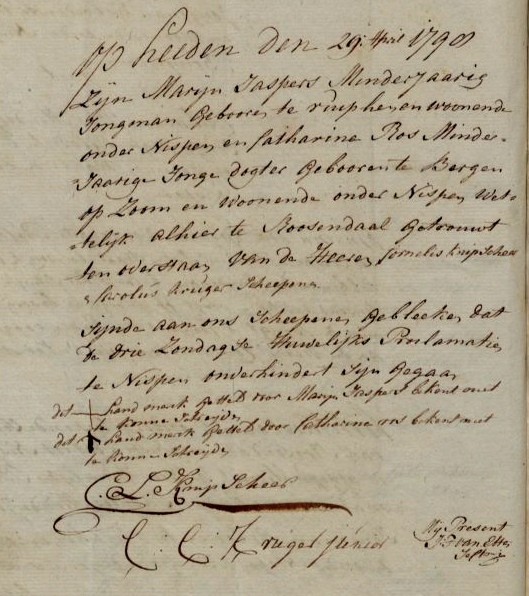 op heeden den 29: April 1798
Zijn Marijn Jaspers Minderjaarig
Jongman Gebooren te rucphen en woonende
onder Nispen en Catharina Ros Minder-
Jaarige Jonge dogter Gebooren te Bergen
op Zoom en Woonende onder Nispen Wet-
telijk alhier te Roosendaal Getrouwt
ten overstaan van de Heeren Cornelis Knipscheer
& Carolus Kruger Scheepenen
Sijnde aan ons Scheepenen Gebleeken dat
de drie Zondagse Huwelijks Proclamatien
te Nispen onverhindert Sijn Gegaan
dit hand merk Gestelt door Marijn Jaspers bekent niet
te konne Schreijden
dit hand merk Gestelt door Catharina ros bekent niet
te konne Schreijden
C. L. Knip Scheer
C: C: Kruger junior
Mij Present
J: F: van Etten